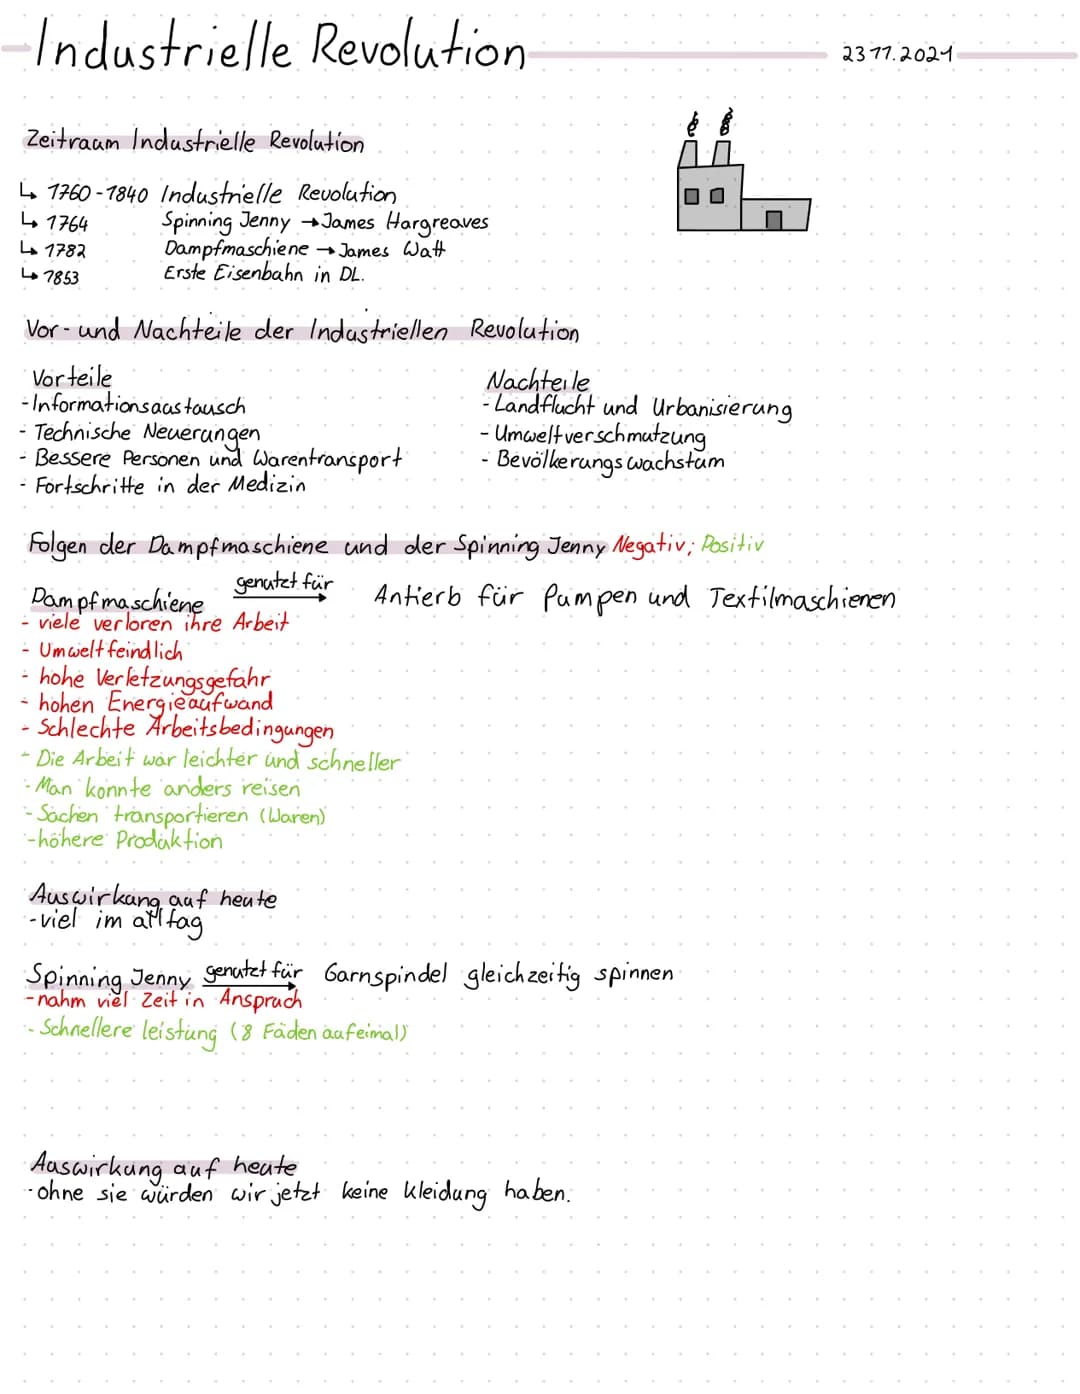 Industrielle Revolution 23 11.2021
Zeitraum Industrielle Revolution
↳ 1760-1840 Industrielle Revolution
↳ 1764 Spinning Jenny → James Hargreaves
↳ 1782 Dampfmaschiene → James Watt
↳ 1853 Erste Eisenbahn in DL.
Vor- und Nachteile der Industriellen Revolution
Vorteile
-Informationsaustausch
- Technische Neuerungen
- Bessere Personen und Warentransport
- Fortschritte in der Medizin
Nachteile
- Landflucht und Urbanisierung
- Umweltverschmutzung
- Bevölkerungswachstum
Folgen der Dampfmaschiene und der Spinning Jenny Negativ; Positiv
Dampfmaschiene genutzt für → Antierb für Pumpen und Textilmaschienen
- viele verloren ihre Arbeit
- Umweltfeindlich
- hohe Verletzungsgefahr
- hohen Energieaufwand
- Schlechte Arbeitsbedingungen
- Die Arbeit war leichter und schneller
- Man konnte anders reisen
- Sachen transportieren (Waren)
-höhere Produktion
Auswirkung auf heute
-viel im alltag
Spinning Jenny genutzt für → Garnspindel gleichzeitig spinnen
-nahm viel Zeit in Anspruch
- Schnellere leistung (8 Fäden aufeimal)
Auswirkung auf heute
-ohne sie würden wir jetzt keine Kleidung haben.